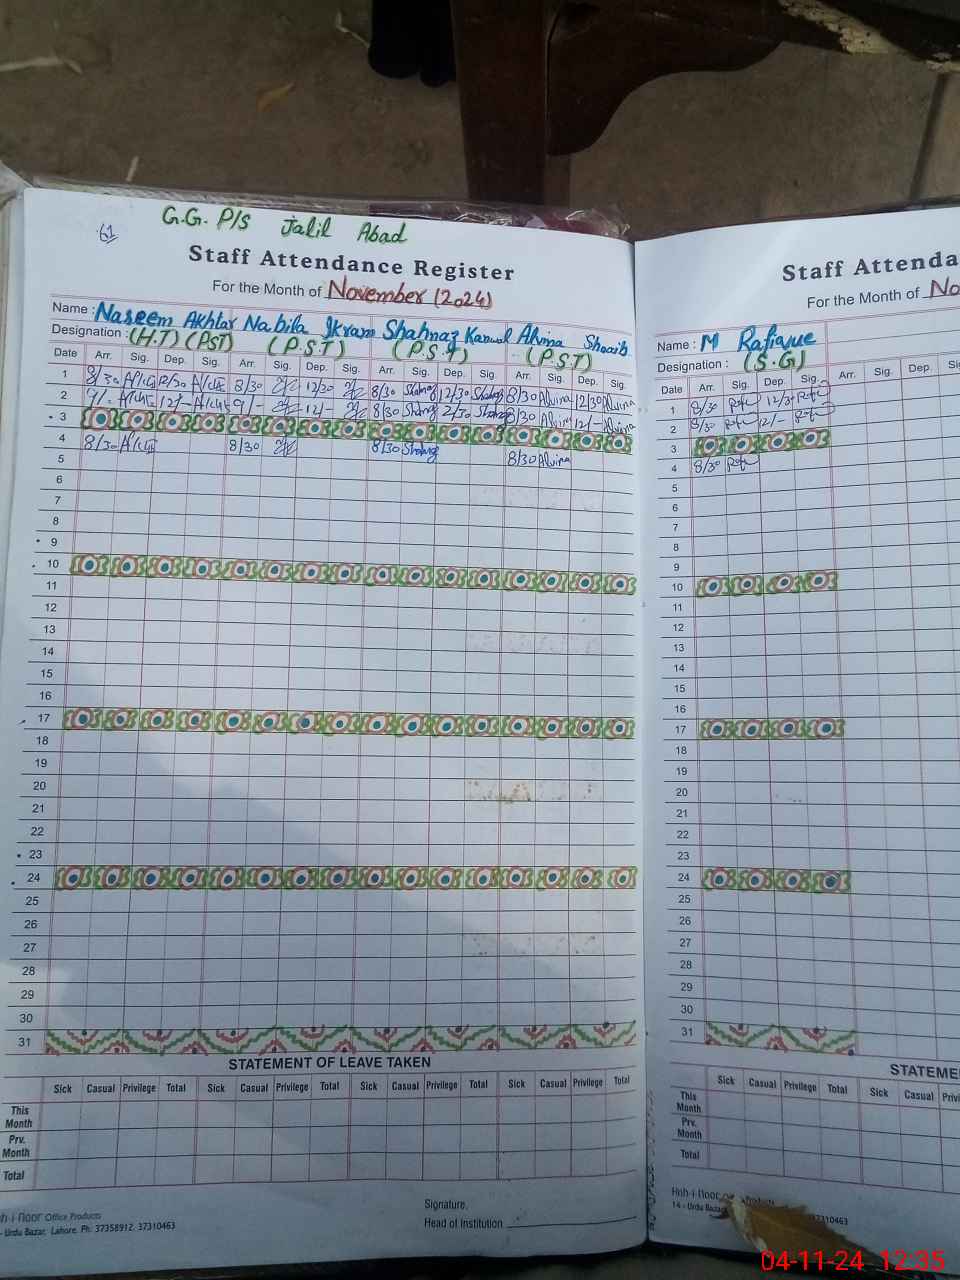 61
G.G. P/S Jalil Abad
Staff Attendance Register
For the Month of November (2024)
Name : Naseem Akhtar Nabila Ikram Shahnaz Kanwal Alvina Shoaib
Designation : (H.T) (PST) (P.S.T) (P.S.T) (P.S.T)
Date Arr. Sig. Dep. Sig. Arr. Sig. Dep. Sig. Arr. Sig. Dep. Sig. Arr. Sig. Dep. Sig.
1 8/30 12/30 8/30 12/30 8/30 Shahnaz 12/30 Shahnaz 8/30 Alvina 12/30 Alvina
2 9/- 12/- 9/- 12/- 8/30 Shahnaz 2/30 Shahnaz 8/30 Alvina 12/- Alvina
3
4 8/30 8/30 8/30 Shahnaz 8/30 Alvina
5
6
7
8
9
10
11
12
13
14
15
16
17
18
19
20
21
22
23
24
25
26
27
28
29
30
31
STATEMENT OF LEAVE TAKEN
Sick Casual Privilege Total Sick Casual Privilege Total Sick Casual Privilege Total Sick Casual Privilege Total
This Month
Prv. Month
Total
Signature.
Head of Institution
h-i-noor Office Products
- Urdu Bazar, Lahore. Ph: 37358912, 37310463
Staff Attenda
For the Month of No
Name : M Rafique
Designation : (S.G)
Date Arr. Sig. Dep. Sig. Arr. Sig. Dep. Sig.
1 8/30 12/30
2 8/30 12/-
3
4 8/30
5
6
7
8
9
10
11
12
13
14
15
16
17
18
19
20
21
22
23
24
25
26
27
28
29
30
31
STATEME
Sick Casual Privilege Total Sick Casual Privi
This Month
Prv. Month
Total
Hoh-i-noor
14 - Urdu Bazar
7310463
04-11-24 12:35